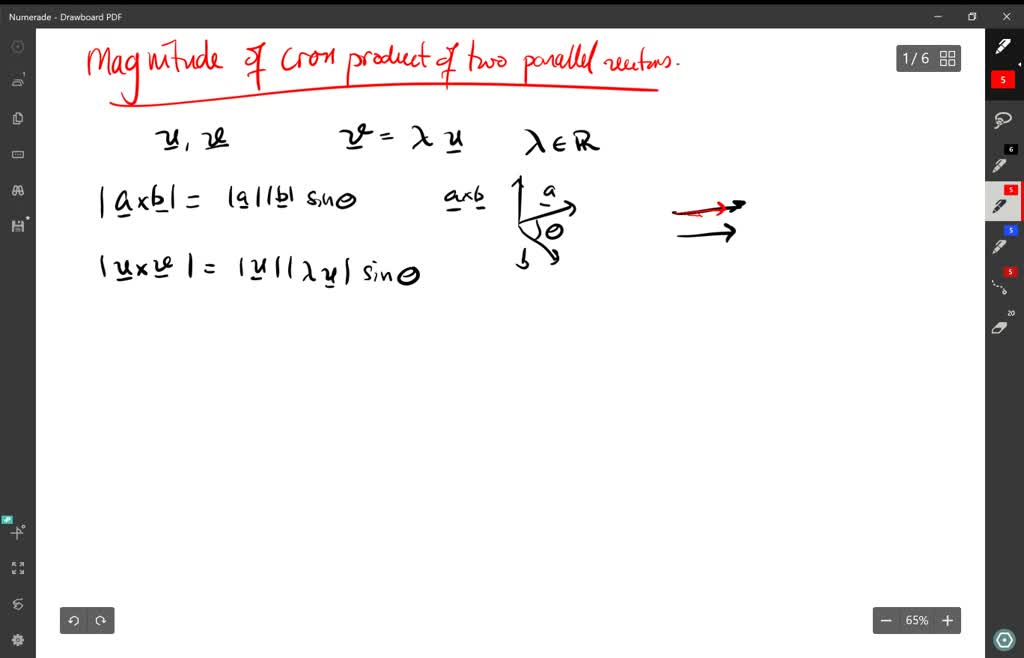 Numerade - Drawboard PDF
Magnitude of cross product of two parallel vectors.
1 / 6
5
u, v   v = λ u   λ ∈ ℝ
6
|a×b| = |a||b| sinθ   a×b   a   θ   b
5
5
|u×v| = |u||λu| sinθ
5
20
65%